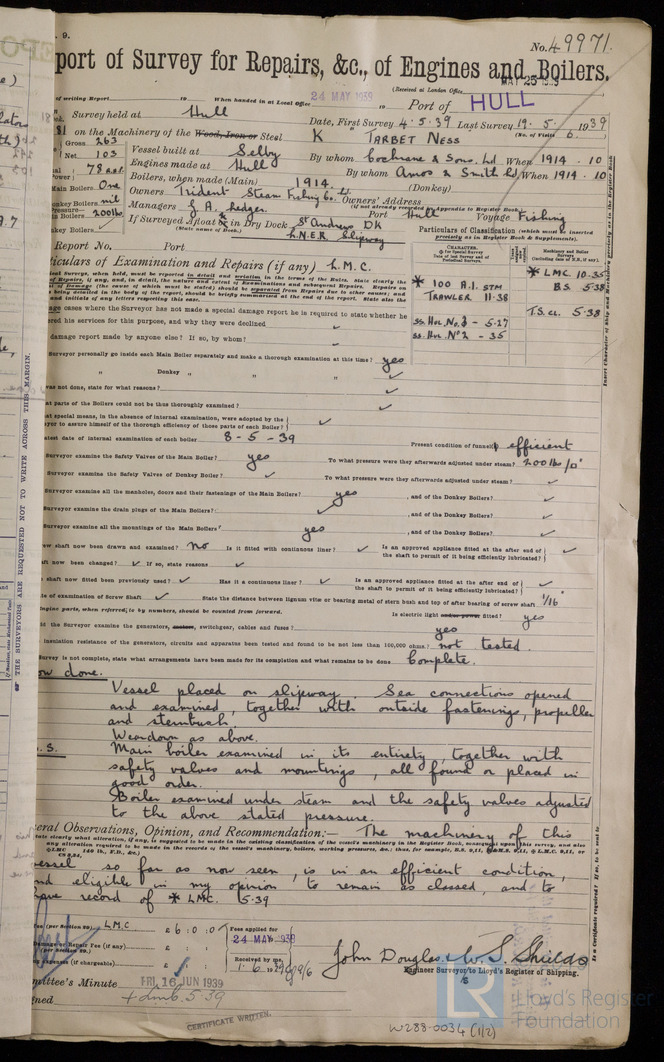 9.
No. 49971.
port of Survey for Repairs, &c., of Engines and Boilers.
(Received at London Office MAY 25 1939
of writing Report to When handed in at Local Office 24 MAY 1939 to Port of HULL
Survey held at Hull Date, First Survey 4.5.39 Last Survey 19.5.1939
(No. of Visits 6.
on the Machinery of the Wood, Iron or Steel K TARBET NESS
Gross 263
Net 103
Vessel built at Selby By whom Cochrane & Sons. Ld When 1914.10
Engines made at Hull By whom Amos & Smith Ld When 1914.10
Boilers, when made (Main) 1914. (Donkey)
Main Boilers One
Owners Trident Steam Fishing Co. Ld Owners' Address
(if not already recorded in Appendix to Register Book.)
Donkey Boilers nil
Managers J. A. Ledger. Port Hull Voyage Fishing
Main Boilers 200lb
If Surveyed Afloat or in Dry Dock St Andrews DK
(State name of Dock.) L.N.E.R Slipway
Donkey Boilers
Particulars of Classification (which must be inserted
precisely as in Register Book & Supplements).
CHARACTER.
* 100 A.1. STM
TRAWLER 11.38
SS. Hul. No. 3 - 5.27
SS. Hul. No 2 - 35
* LMC 10.35
B.S. 5.38
T.S. CL. 5.38
Report No. Port
ticulars of Examination and Repairs (if any) L.M.C.
age cases where the Surveyor has not made a special damage report he is required to state whether he
ered his services for this purpose, and why they were declined
damage report made by anyone else? If so, by whom?
Surveyor personally go inside each Main Boiler separately and make a thorough examination at this time? yes
" Donkey " " "
was not done, state for what reasons?
at parts of the Boilers could not be thoroughly examined?
at special means, in the absence of internal examination, were adopted by the
yor to assure himself of the thorough efficiency of those parts of each Boiler?
atest date of internal examination of each boiler 8-5-39 Present condition of funnel efficient
Surveyor examine the Safety Valves of the Main Boiler? yes To what pressure were they afterwards adjusted under steam? 200 lbs/□"
Surveyor examine the Safety Valves of Donkey Boiler? To what pressure were they afterwards adjusted under steam?
Surveyor examine all the manholes, doors and their fastenings of the Main Boilers? yes , and of the Donkey Boilers?
Surveyor examine the drain plugs of the Main Boilers? , and of the Donkey Boilers?
Surveyor examine all the mountings of the Main Boilers? yes , and of the Donkey Boilers?
ew shaft now been drawn and examined? No Is it fitted with continuous liner? Is an approved appliance fitted at the after end of
the shaft to permit of it being efficiently lubricated?
aft now been changed? If so, state reasons
shaft now fitted been previously used? Has it a continuous liner? Is an approved appliance fitted at the after end of
the shaft to permit of it being efficiently lubricated?
te of examination of Screw Shaft State the distance between lignum vitæ or bearing metal of stern bush and top of after bearing of screw shaft 1/16"
Engine parts, when referred to by numbers, should be counted from forward. Is electric light and/or power fitted? yes
id the Surveyor examine the generators, motors, switchgear, cables and fuses? yes
insulation resistance of the generators, circuits and apparatus been tested and found to be not less than 100,000 ohms? not tested.
Survey is not complete, state what arrangements have been made for its completion and what remains to be done Complete.
ow done.
Vessel placed on slipway. Sea connections opened
and examined, together with outside fastenings, propeller
and sternbush.
Weardown as above.
B.S.
Main boiler examined in its entirety, together with
safety valves and mountings, all found or placed in
good order.
Boiler examined under steam and the safety valves adjusted
to the above stated pressure.
eral Observations, Opinion, and Recommendation:— The machinery of this
essel so far as now seen, is in an efficient condition,
nd eligible in my opinion to remain as classed, and to
have record of * LMC 5.39
Fee (per Section 29) LMC £6:0:0 Fees applied for
24 MAY 1939
Damage or Repair Fee (if any) £ : :
(per Section 29.)
ng Expenses (if chargeable) £ : : Received by me,
John Douglas & W. S. Shields
Engineer Surveyor to Lloyd's Register of Shipping.
mmittee's Minute FRI. 16 JUN 1939
gned + Lmc 5.39
CERTIFICATE WRITTEN.
W288-0034 (1/2)
LR
Lloyd's Register
Foundation
THE SURVEYORS ARE REQUESTED NOT TO WRITE ACROSS THIS MARGIN.